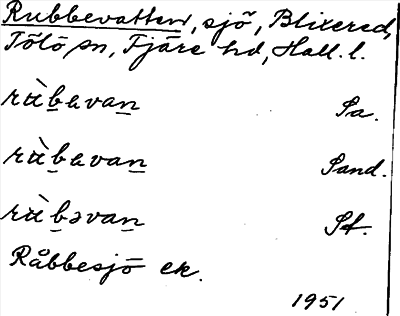 Rubbevatten, sjö, Blixered,
Tölö sn, Fjäre hd, Hall. l.
rùb̲avan̲ Sa.
rùb̲avan̲ Sand.
rùb̲əvan̲ St.
Råbbesjö ek.
1951